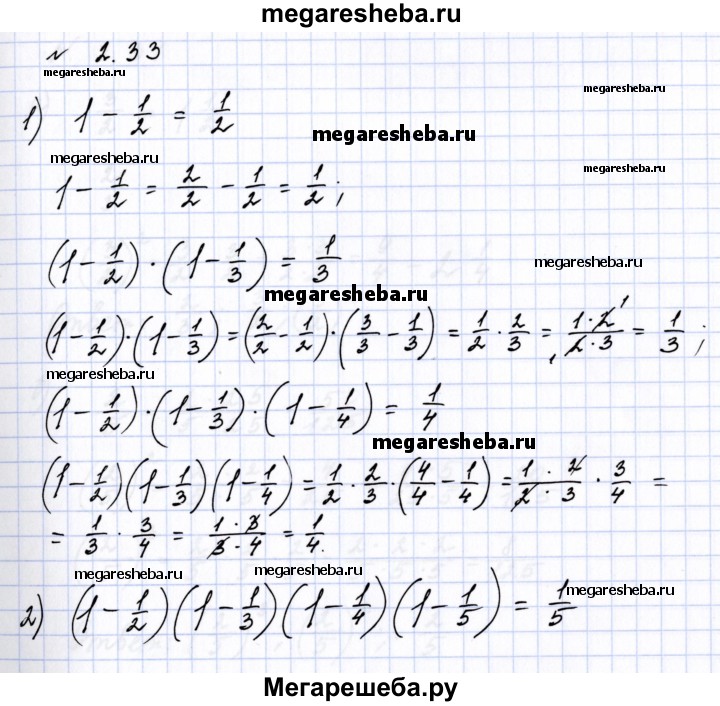 megaresheba.ru
№ 2.33
megaresheba.ru
megaresheba.ru
1) 1 - 1/2 = 1/2
megaresheba.ru
megaresheba.ru
megaresheba.ru
1 - 1/2 = 2/2 - 1/2 = 1/2;
(1 - 1/2) · (1 - 1/3) = 1/3
megaresheba.ru
megaresheba.ru
(1 - 1/2) · (1 - 1/3) = (2/2 - 1/2) · (3/3 - 1/3) = 1/2 · 2/3 = 1·2/2·3 = 1/3;
megaresheba.ru
(1 - 1/2) · (1 - 1/3) · (1 - 1/4) = 1/4
megaresheba.ru
(1 - 1/2)(1 - 1/3)(1 - 1/4) = 1/2 · 2/3 · (4/4 - 1/4) = 1·2/2·3 · 3/4 =
= 1/3 · 3/4 = 1·3/3·4 = 1/4.
megaresheba.ru
megaresheba.ru
megaresheba.ru
2) (1 - 1/2)(1 - 1/3)(1 - 1/4)(1 - 1/5) = 1/5
Мегарешеба.ру